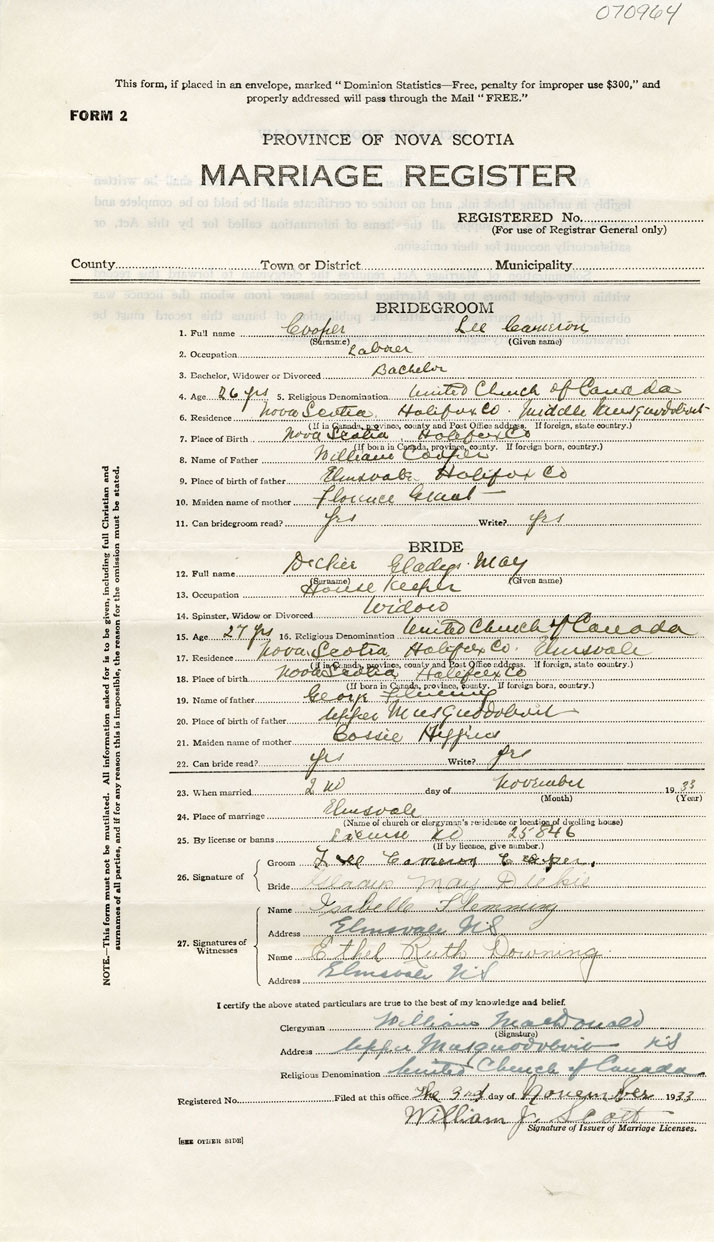 070964
This form, if placed in an envelope, marked "Dominion Statistics—Free, penalty for improper use $300," and
properly addressed will pass through the Mail "FREE."
FORM 2
PROVINCE OF NOVA SCOTIA
MARRIAGE REGISTER
REGISTERED No.
(For use of Registrar General only)
County Town or District Municipality
BRIDEGROOM
1. Full name Cooper Lee Cameron
(Surname) (Given name)
2. Occupation Laborer
3. Bachelor, Widower or Divorced Bachelor
4. Age 26 yrs 5. Religious Denomination United Church of Canada
6. Residence Nova Scotia Halifax Co. Middle Musquodoboit
(If in Canada, province, county and Post Office address. If foreign, state country.)
7. Place of Birth Nova Scotia Halifax Co
(If born in Canada, province, county. If foreign born, country.)
8. Name of Father William Cooper
9. Place of birth of father Elmsvale Halifax Co
10. Maiden name of mother Florence
11. Can bridegroom read? yes Write? yes
BRIDE
12. Full name Dickie Gladys May
(Surname) (Given name)
13. Occupation House Keeper
14. Spinster, Widow or Divorced Widow
15. Age 27 yrs 16. Religious Denomination United Church of Canada
17. Residence Nova Scotia Halifax Co. Elmsvale
(If in Canada, province, county and Post Office address. If foreign, state country.)
18. Place of birth Nova Scotia Halifax Co
(If born in Canada, province, county. If foreign born, country.)
19. Name of father George Flemming
20. Place of birth of father Upper Musquodoboit
21. Maiden name of mother Higgins
22. Can bride read? yes Write? yes
23. When married 2nd day of November 1933
(Month) (Year)
24. Place of marriage Elmsvale
(Name of church or clergyman's residence or location of dwelling house)
25. By license or banns License No 25846
(If by licence, give number.)
26. Signature of
Groom Lee Cameron Cooper.
Bride Gladys May Dickie
27. Signatures of Witnesses
Name Isabelle Flemming
Address Elmsvale N.S
Name Ethel Ruth Downing
Address Elmsvale N.S
I certify the above stated particulars are true to the best of my knowledge and belief.
Clergyman William MacDonald
(Signature)
Address Upper Musquodoboit N.S
Religious Denomination United Church of Canada
Registered No. Filed at this office The 3rd day of November 1933
William J. Scott
Signature of Issuer of Marriage Licenses.
[SEE OTHER SIDE]
NOTE.—This form must not be mutilated. All information asked for is to be given, including full Christian and
surnames of all parties, and if for any reason this is impossible, the reason for the omission must be stated.